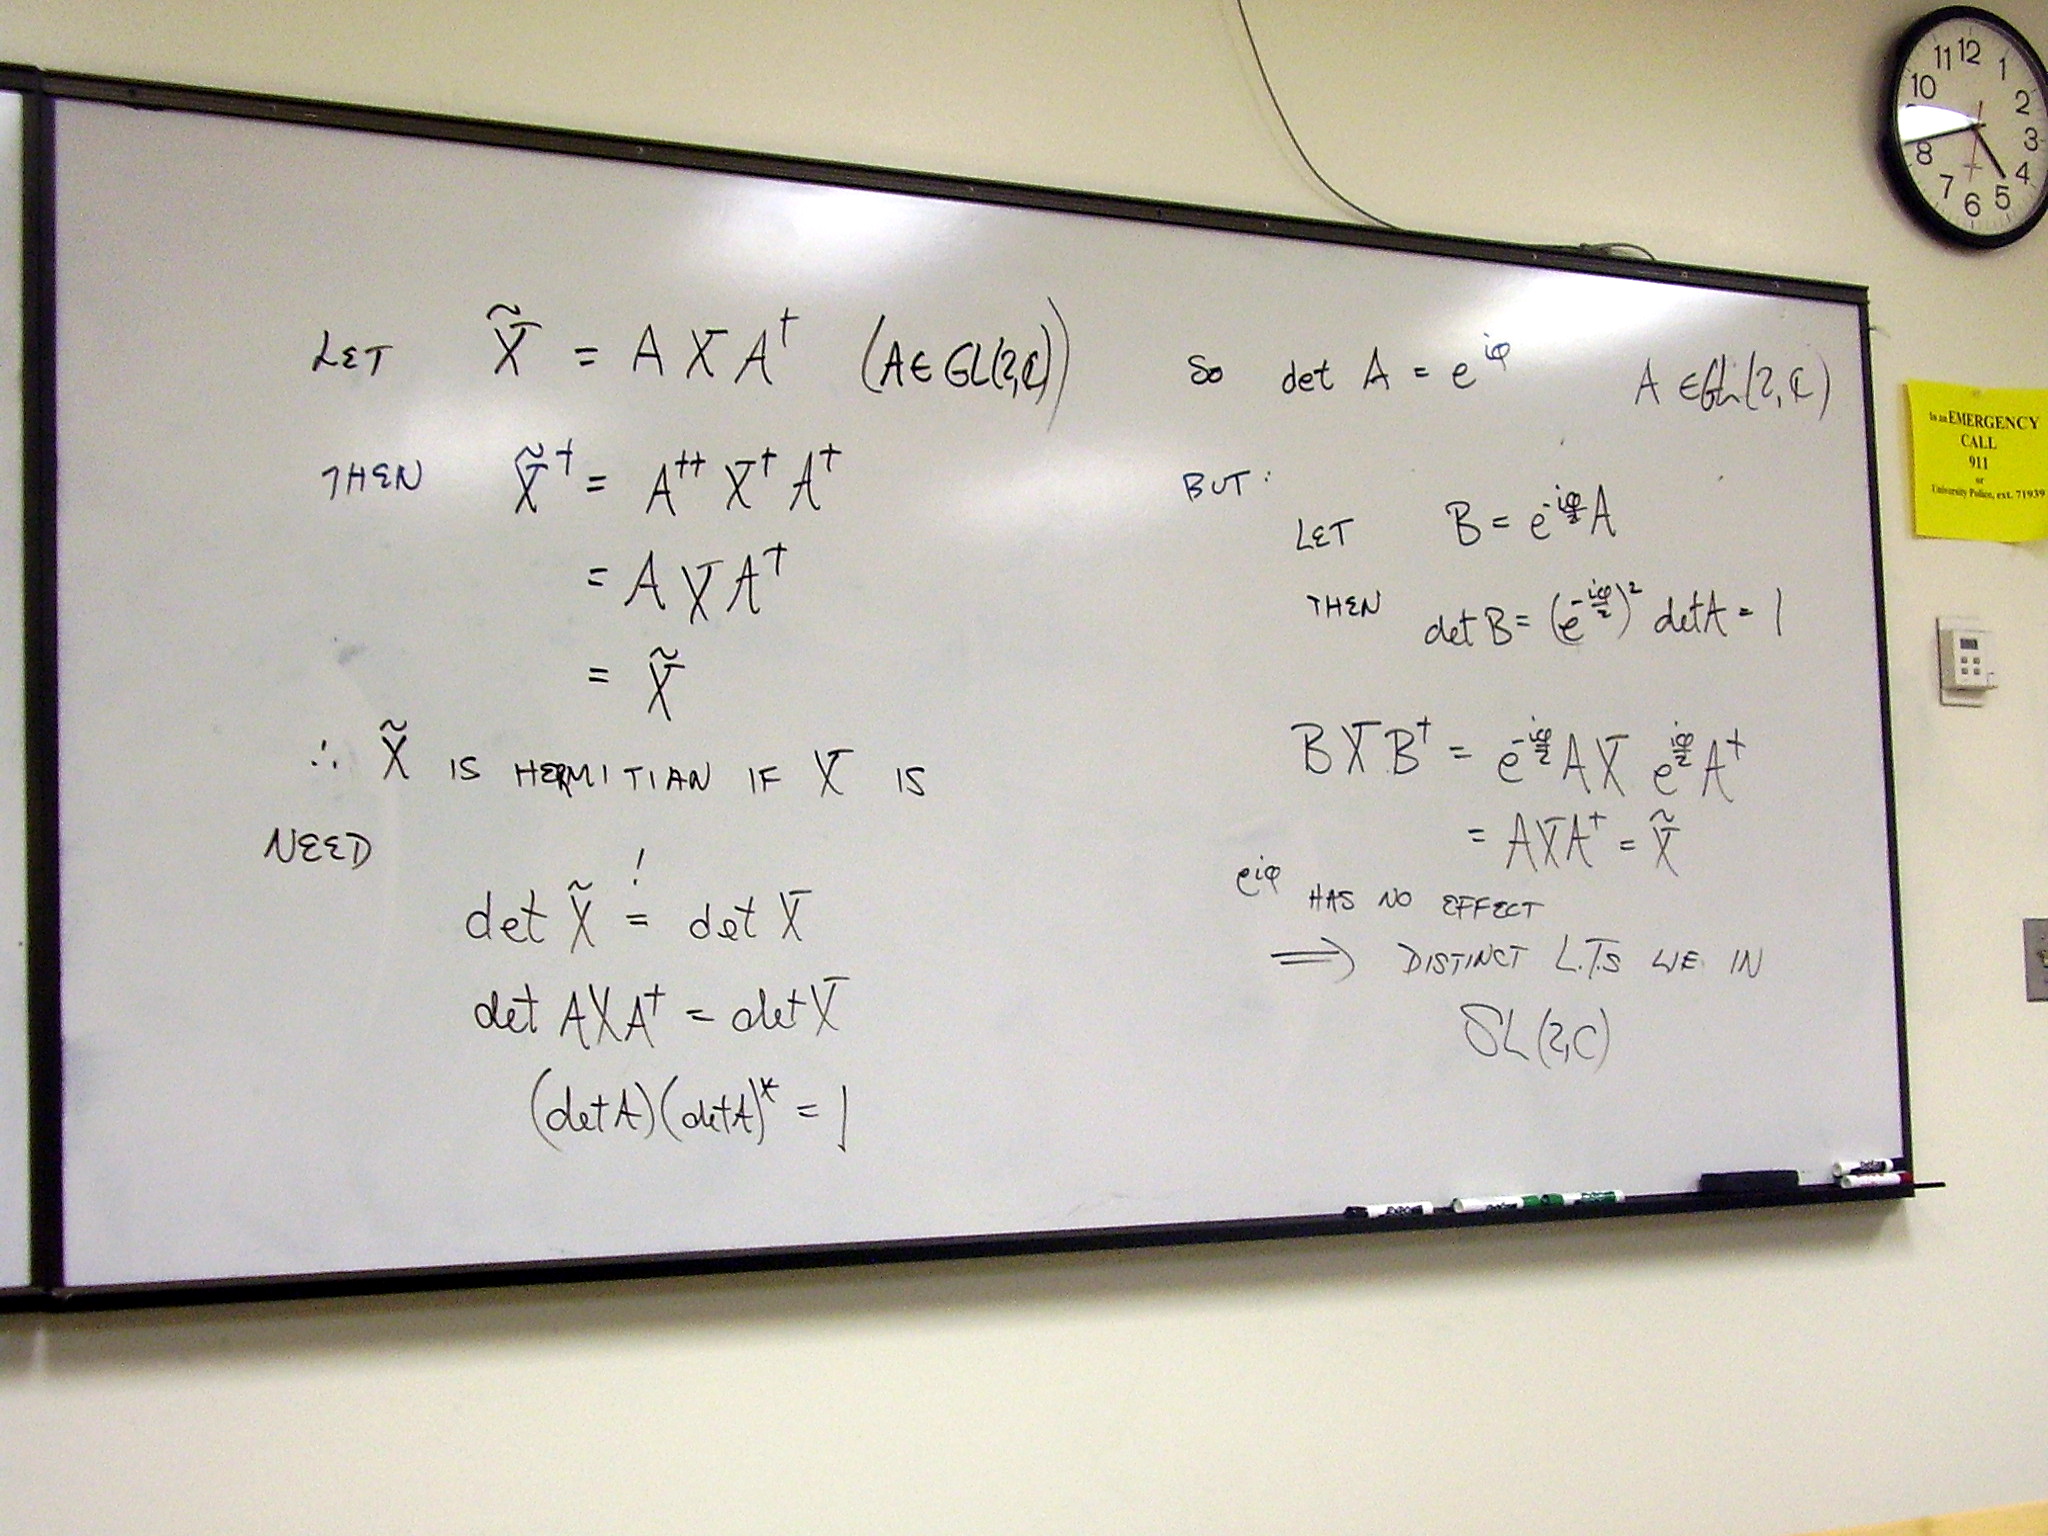 LET X̃ = A X A† (A∈GL(2,ℂ))
THEN X̃† = A†† X† A†
= A X A†
= X̃
∴ X̃ IS HERMITIAN IF X IS
NEED
!
det X̃ = det X
det AXA† = det X
(det A)(det A)* = 1
So det A = e^{iφ} A ∈GL(2,ℂ)
BUT:
LET B = e^{-iφ/2} A
THEN det B = (e^{-iφ/2})² det A = 1
B X B† = e^{-iφ/2} A X e^{iφ/2} A†
= A X A† = X̃
e^{iφ} HAS NO EFFECT
⟹ DISTINCT L.T.S LIE IN
SL(2,C)
11 12 1
10 2
3
8 4
7 6 5
In an EMERGENCY
CALL
911
or
University Police, ext. 71939
EXPO